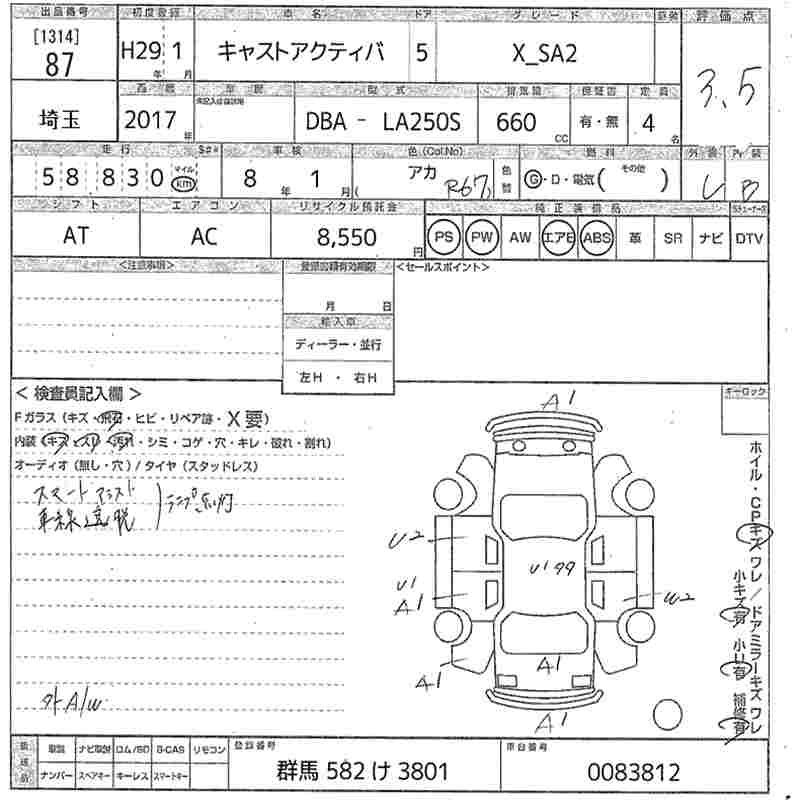 出品番号 初度登録 車名 ドア グレード 評価点
[1314]
87 H29 1 年 月 キャストアクティバ 5 X_SA2 3.5
西暦 車歴 型式 排気量 保証書 定員
埼玉 2017年 DBA - LA250S 660 CC 有・無 4 名
走行 車検 色(Col.No) 燃料 外装 内装
58830 マイル km 8 年 1 月 アカ R67 色替 G・D・電気( その他 ) C B
シフト エアコン リサイクル預託金 純正装備品
AT AC 8,550 円 PS PW AW エアB ABS 革 SR ナビ DTV
<注意事項> 登録書類有効期限 <セールスポイント>
月 日
輸入車
ディーラー・並行
左H ・ 右H
< 検査員記入欄 > キーロック
Fガラス (キズ・飛石・ヒビ・リペア跡・X要)
内装 (キズ・スレ・汚れ・シミ・コゲ・穴・キレ・破れ・割れ)
オーディオ (無し・穴) / タイヤ (スタッドレス)
スマートアシスト
車線逸脱 ランプ点灯
外A/W
A1
U2
U1
A1
A1
U199
W2
A1
A1
ホイル・CPキズ ワレ / ドアミラーキズ ワレ
小キズ有 小U有 補修有
取説 ナビ取説 ロム/SD B-CAS リモコン 登録番号 車台番号
ナンバー スペアキー キーレス スマートキー 群馬 582 け 3801 0083812